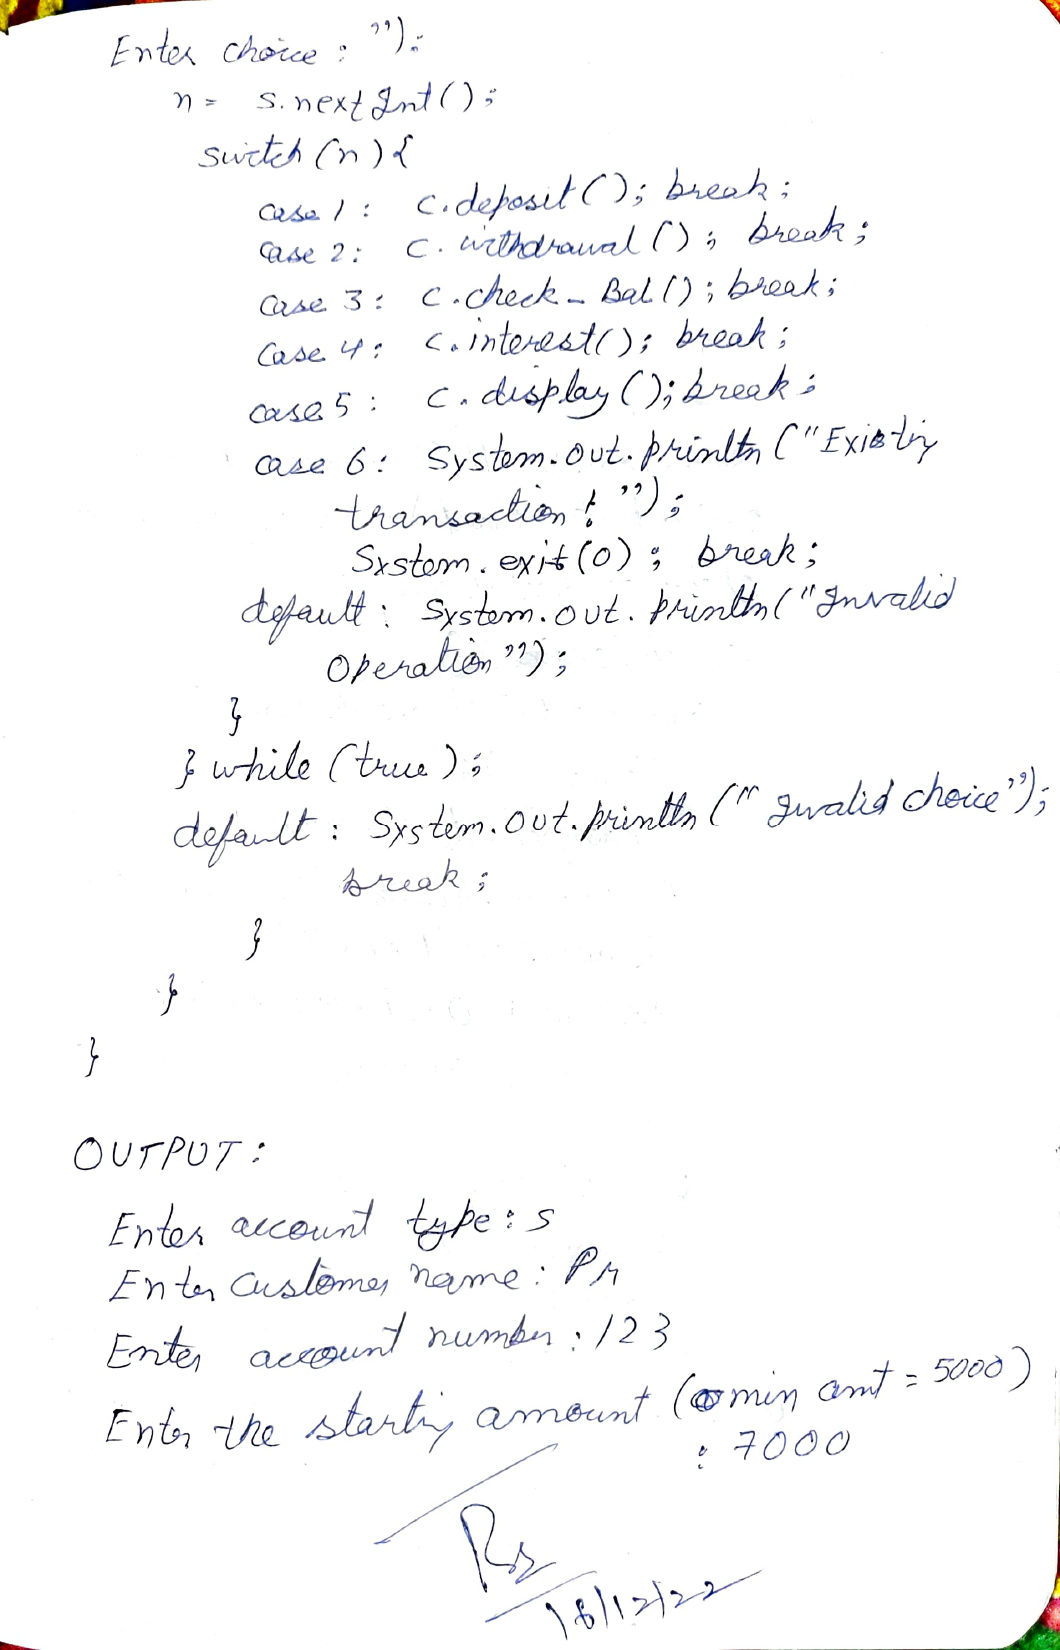 Enter choice : ");
n = s.nextInt();
switch (n) {
case 1 : c.deposit(); break;
case 2 : c.withdrawal(); break;
case 3 : c.check_Bal(); break;
case 4 : c.interest(); break;
case 5 : c.display(); break;
case 6 : System.out.println("Existing
transaction! ");
System.exit(0); break;
default : System.out.println("Invalid
Operation");
}
} while (true);
default : System.out.println("Invalid choice");
break;
}
}
}
OUTPUT :
Enter account type : s
Enter Customer name :
Enter account number : 123
Enter the starting amount (min amt = 5000)
: 7000
18/12/22